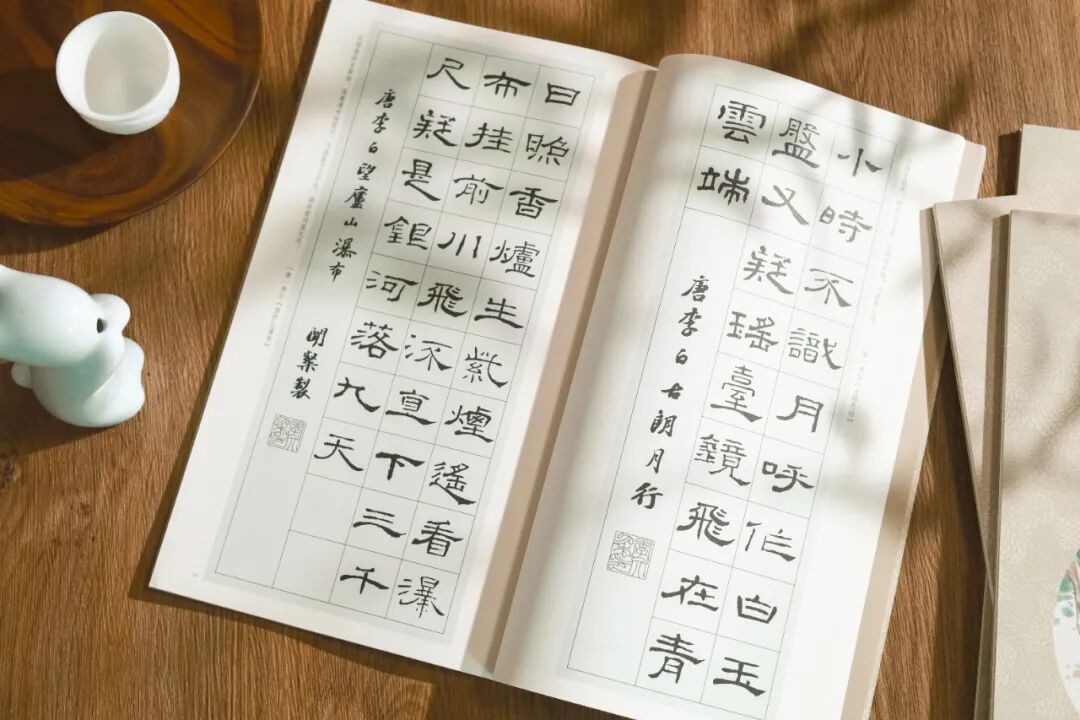 小時不識月呼作白玉
盤又疑瑤臺鏡飛在青
雲端
唐李白古朗月行
日照香爐生紫煙遙看瀑
布挂前川飛流直下三千
尺疑是銀河落九天
唐李白望廬山瀑布
製